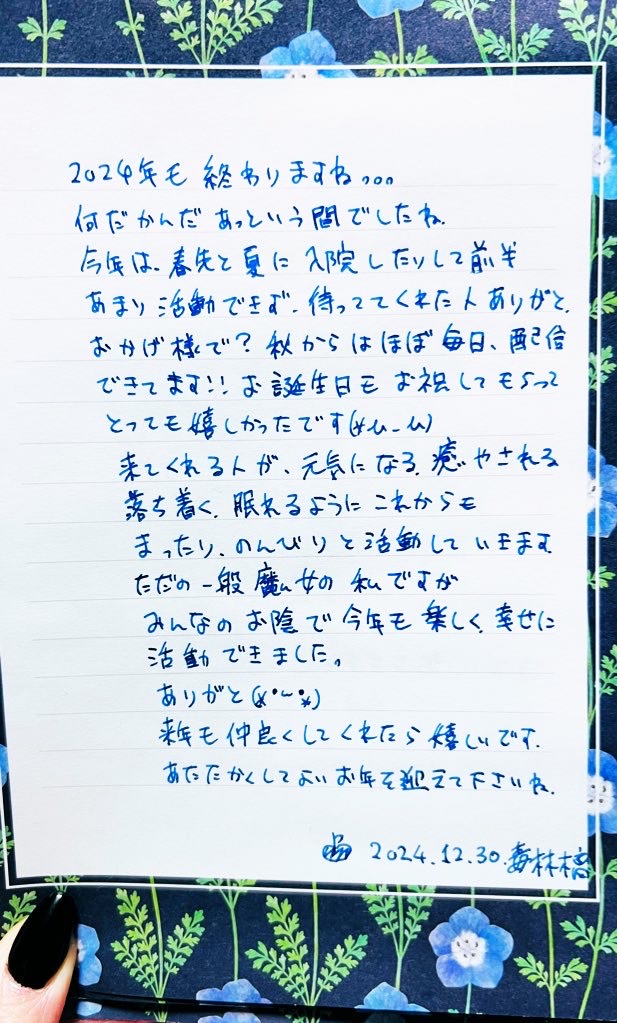 2024年も終わりますね。。。
何だかんだあっという間でしたね.
今年は、春先と夏に入院したりして前半
あまり活動できず、待っててくれた人ありがと、
おかげ様で？秋からはほぼ毎日、配信
できてます!!お誕生日もお祝してもらって
とっても嬉しかったです(*ᴗ_ᴗ)
来てくれる人が、元気になる、癒やされる
落ち着く、眠れるようにこれからも
まったり、のんびりと活動していきます
ただの一般魔女の私ですが
みんなのお陰で今年も楽しく、幸せに
活動できました。
ありがと(*•ᴗ•*)
来年も仲良くしてくれたら嬉しいです.
あたたかくしてよいお年を迎えて下さいね.
2024.12.30.毒林檎